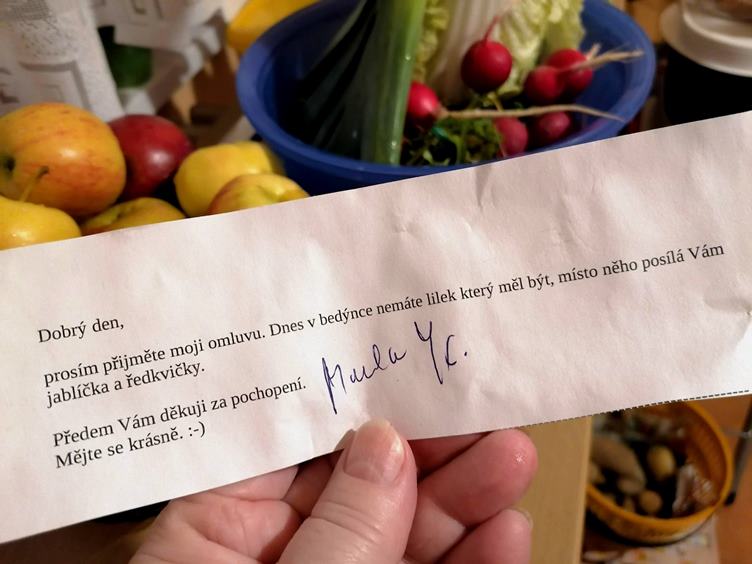 Dobrý den,
prosím přijměte moji omluvu. Dnes v bedýnce nemáte lilek který měl být, místo něho posílá Vám
jablíčka a ředkvičky.
Předem Vám děkuji za pochopení.
Mějte se krásně. :-)